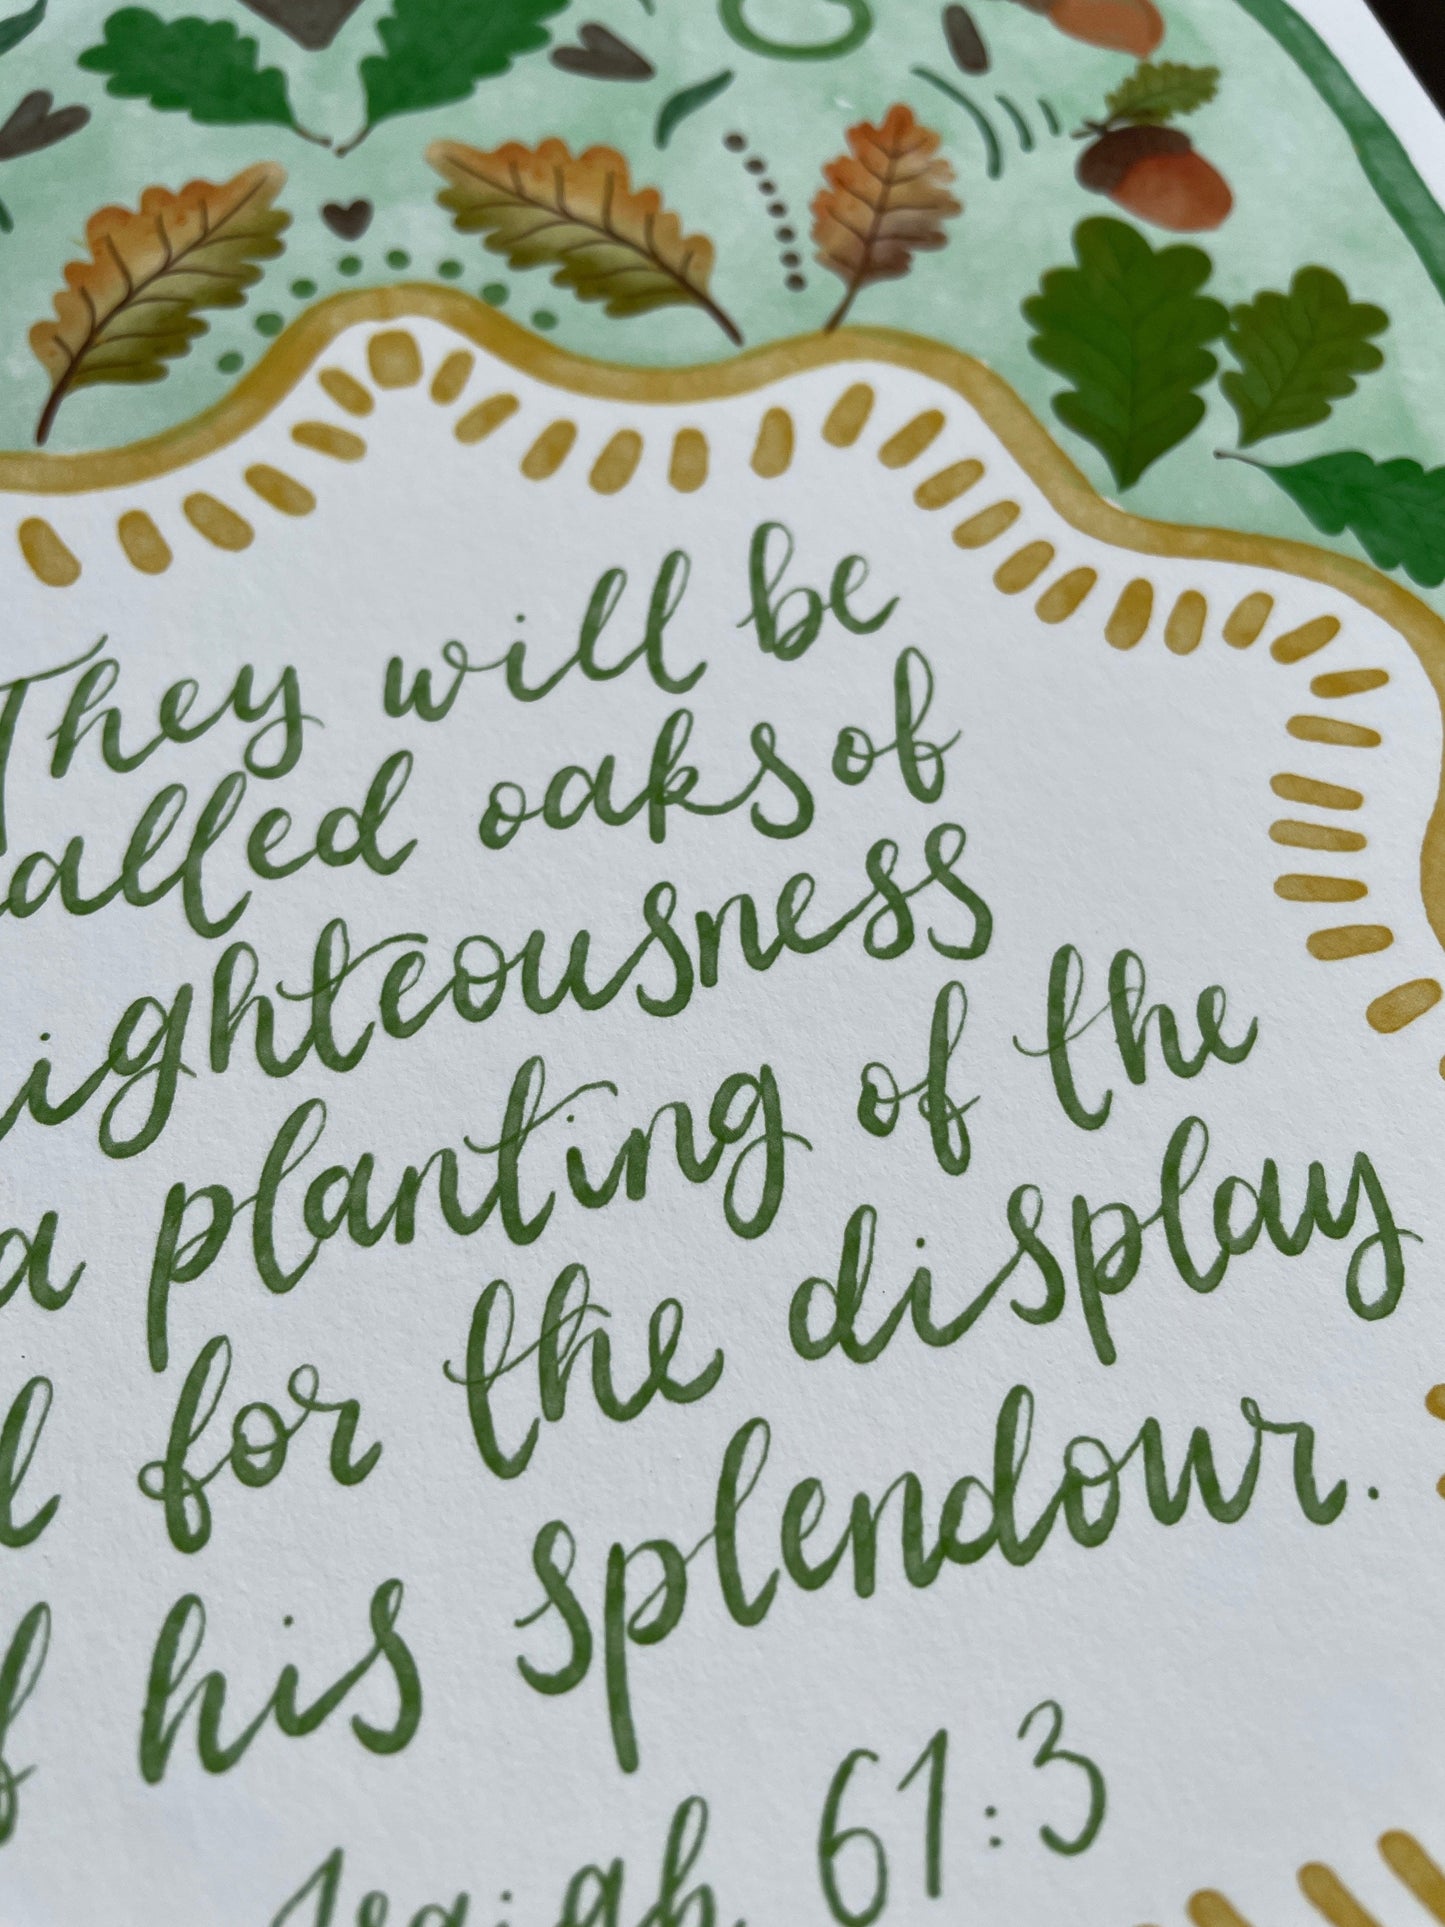 They will be
alled oaks of
ighteousness
a planting of the
for the display
his splendour.
Isaiah 61:3